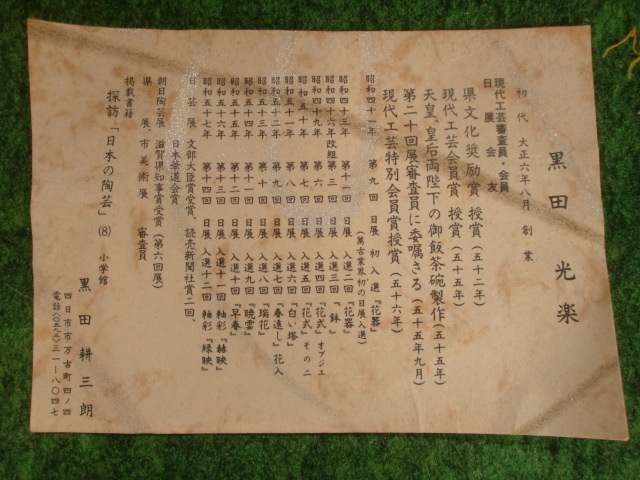 黒田光楽
初代 大正六年八月創業
現代工芸審査員・会員
日展会友
県文化奨励賞 授賞(五十二年)
現代工芸会員賞 授賞(五十五年)
天皇、皇后両陛下の御飯茶碗製作(五十五年)
第二十回展審査員に委嘱さる(五十五年九月)
現代工芸特別会員賞授賞(五十六年)
昭和四十一年 第九回 日展 初入選『花器』
(萬古業界初の日展入選)
昭和四十三年 第十一回 日展 入選二回『花器』
昭和四十六年改組第三回 日展 入選三回『鉢』
昭和四十九年 第六回 日展 入選四回『花式』オブジエ
昭和五十年 第七回 日展 入選五回『花式』その二
昭和五十一年 第八回 日展 入選六回『白い塔』
昭和五十二年 第九回 日展 入選七回『春遠し』花入
昭和五十三年 第十回 日展 入選八回『瑞花』
昭和五十四年 第十一回 日展 入選九回『暁雲』
昭和五十五年 第十二回 日展 入選十回『早春』
昭和五十六年 第十三回 日展 入選十一回 釉彩『赫映』
昭和五十七年 第十四回 日展 入選十二回 釉彩『緑映』
日芸展 文部大臣賞受賞、読売新聞社賞二回、
日本華道会賞
朝日陶芸展 滋賀県知事賞受賞(第六回展)
県展、市美術展 審査員
掲載書籍
探訪「日本の陶芸」(8) 小学館
黒田耕三朗
四日市市万古町四ノ四
電話(〇五九三)三一―八〇四七